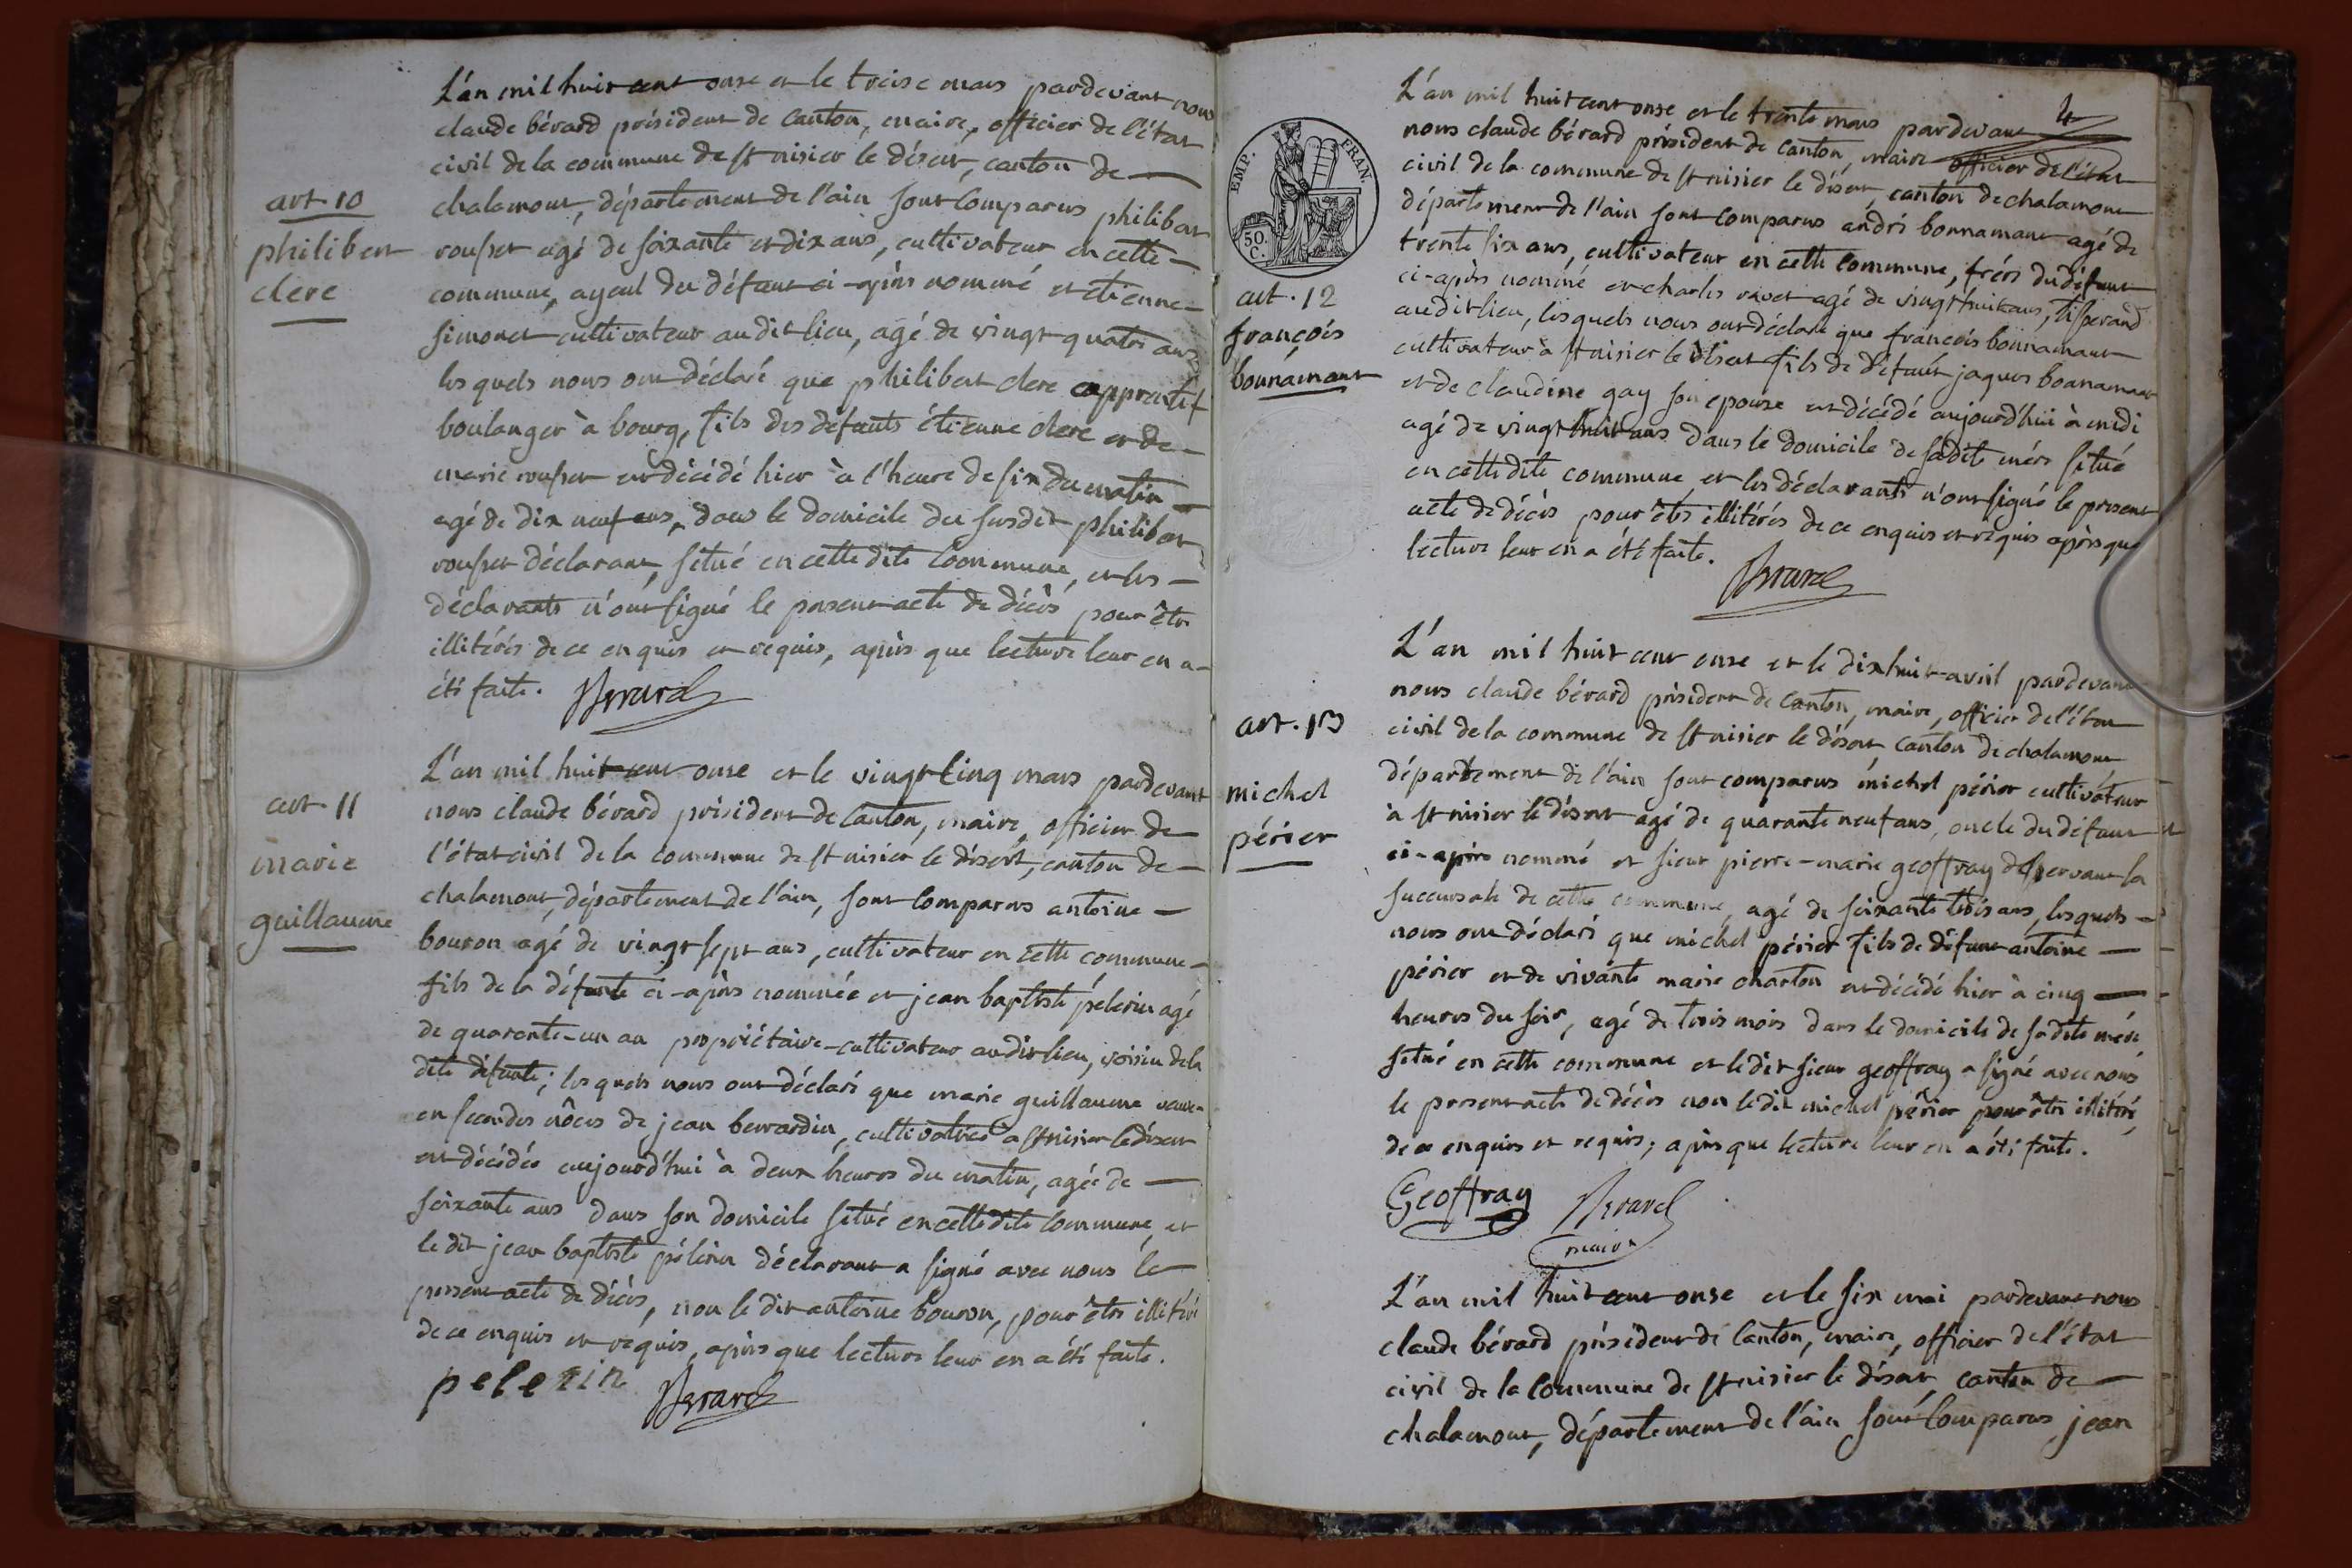 L'an mil huit cent onse et le treise mars pardevant nous
claude bérard président de canton, maire, officier de l'état
civil de la commune de st nisier le désert, canton de
art. 10
philibert
clerc
chalamont, département de l'ain sont comparus philibert
rousset agé de soixante et dix ans, cultivateur en cette
commune, ayeul du défunt ci-après nommé et étienne
simonet cultivateur audit lieu, agé de vingt quatre ans
lesquels nous ont déclaré que philibert clerc apprentif
boulanger à bourg, fils des défunts étienne clerc et de
marie rousset est décédé hier à l'heure de six du matin
agé de dix neuf ans, dans le domicile du susdit philibert
rousset déclarant, situé en cette dite commune, et les
déclarants n'ont signé le present acte de décès pour être
illitérés de ce enquis et requis, après que lecture leur en a
été faite. Berard
art. 11
marie
guillaume
L'an mil huit cent onse et le vingt cinq mars pardevant
nous claude bérard président de canton, maire, officier de
l'état civil de la commune de st nisier le désert, canton de
chalamont, département de l'ain, sont comparus antoine
bouron agé de vingt sept ans, cultivateur en cette commune
fils de la défunte ci-après nommée et jean baptiste pélerin agé
de quarante-un an propriétaire-cultivateur audit lieu, voisin de la
dite défunte; lesquels nous ont déclaré que marie guillaume veuve
en secondes nôces de jean berrardin, cultivatrice à st nisier le désert
est décédée aujourd'hui à deux heures du matin, agée de
soixante ans dans son domicile situé en cette dite commune, et
le dit jean baptiste pélerin déclarant a signé avec nous le
present acte de décès, non le dit antoine bouron, pour être illitéré
de ce enquis et requis, après que lecture leur en a été faite.
pelerin Berard
4
EMP. FRAN.
50.
C.
art. 12
françois
bonnamant
L'an mil huit cent onse et le trente mars pardevant
nous claude bérard président de canton, maire officier de l'état
civil de la commune de st nisier le désert, canton de chalamont
département de l'ain sont comparus andré bonnamant agé de
trente six ans, cultivateur en cette commune, frère du défunt
ci-après nommé et charles ravet agé de vingt huit ans, tisserand
audit lieu, lesquels nous ont déclaré que françois bonnamant
cultivateur à st nisier le désert fils de défunt jaques bonnamant
et de claudine gay son epouse est décédé aujourd'hui à midi
agé de vingt huit ans dans le domicile de sadite mère situé
en cette dite commune et les déclarants n'ont signé le present
acte de décès pour être illitérés de ce enquis et requis après que
lecture leur en a été faite.
Berard
art. 13
michel
périer
L'an mil huit cent onse et le dix huit avril pardevant
nous claude bérard président de canton, maire, officier de l'état
civil de la commune de st nisier le désert, canton de chalamont
département de l'ain sont comparus michel périer cultivateur
à st nisier le désert agé de quarante neuf ans, oncle du défunt
ci-après nommé et sieur pierre-marie geoffray desservant la
succursale de cette commune, agé de soixante trois ans, lesquels
nous ont déclaré que michel périer fils de défunt antoine
périer et de vivante marie charton est décédé hier à cinq
heures du soir, agé de trois mois dans le domicile de sadite mère
situé en cette commune et ledit sieur geoffray a signé avec nous
le present acte de décès non ledit michel périer pour être illitéré,
de ce enquis et requis; après que lecture leur en a été faite.
Geoffray Berard
maire
L'an mil huit cent onse et le six mai pardevant nous
claude bérard président de canton, maire, officier de l'état
civil de la commune de st nisier le désert, canton de
chalamont, département de l'ain sont comparus jean